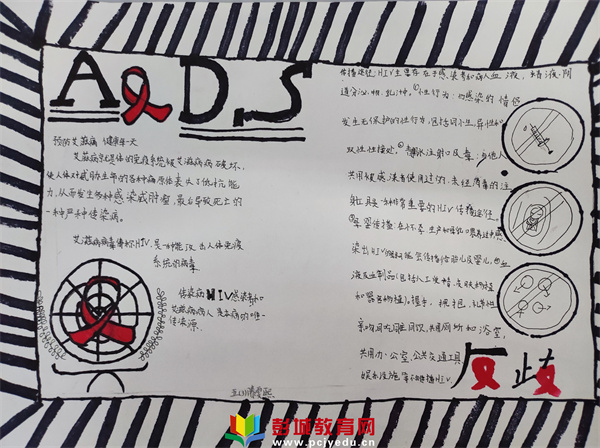 AIDS
预防艾滋病 健康每一天
艾滋病就是体的免疫系统被艾滋病病破坏,
使人体对威胁生命的各种病原体丧失了抵抗能
力,从而发生多种感染或肿瘤,最后导致死亡的
一种严重传染病。
艾滋病病毒简称HIV,是一种能攻击人体免疫
系统的病毒
传染病HIV感染者和
艾滋病病人是本病的唯一
传染源.
传播途径:HIV主要存在于感染者和病人血液,精液,阴
道分泌物,乳汁中,①性行为:与感染的情侣
发生无保护的性行为,包括同性、异性和
双性性接触,②静脉注射吸毒:与他人
共用被感染者使用过的,未经消毒的注
射且是一种非常重要的HIV传播途径.
③母婴传播:在怀孕、生产和母乳喂养过中感
染HIV的母亲会传播给胎儿及婴儿,④血
液及血制品(包括人工受精、皮肤移植
和器官移植)。握手,拥抱,礼节性
亲吻,同吃同饮,共用厕所和浴室,
共用办公室、公共交通工具
娱乐设施等不会传播HIV.
反歧
彭城教育网
www.pcjyedu.cn